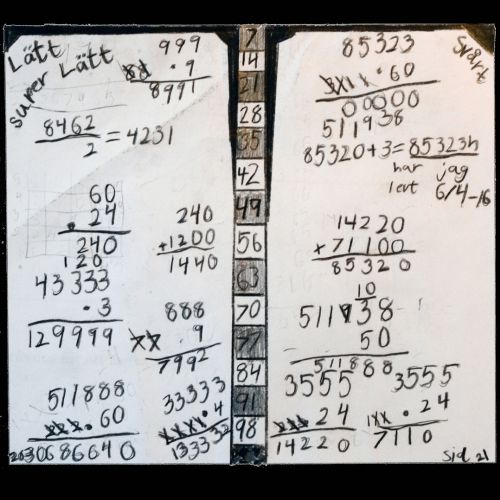 Lätt
super Lätt
999
· 9
8991
8462
2
= 4231
60
· 24
240
120
240
+1200
1440
43333
· 3
129999
888
· 9
7992
511888
· 60
30686640
33333
· 4
133332
7
14
21
28
35
42
49
56
63
70
77
84
91
98
Svårt
85323
· 60
00000
511938
85320+3=85323h
har jag
levt 6/4-16
14220
+ 71100
85320
10
511938
- 50
511888
3555
· 24
14220
3555
· 24
7110
sid 21